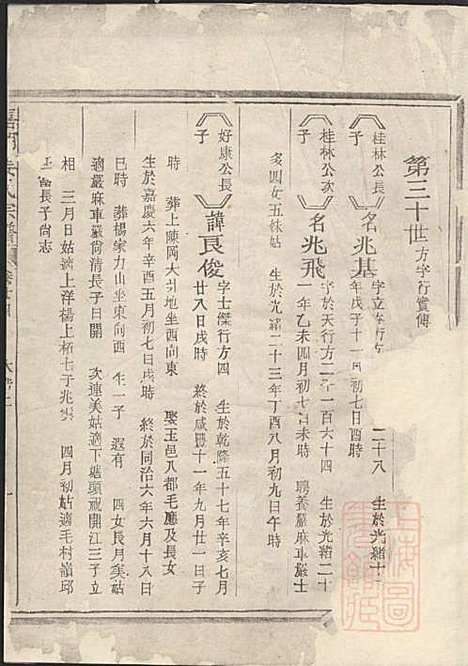 第三十世 方字行實傳
桂林公長子 名兆基 字立 行方 二十八 生於光緒十
年戊子十一月初七日酉時
桂林公次子 名兆飛 字於天行方二千一百六十四 生於光緒二十
一年乙未四月初七日未時 聘養嚴麻車嚴士
炎四女五妹姑 生於光緒二十三年丁酉八月初九日午時
好康公長子 諱良俊 字士傑行方四 生於乾隆五十七年辛亥七月
廿八日戌時 終於咸豐十一年九月廿一日子
時 葬上陳岡大引地坐西向東 娶玉邑八都毛廳及長女
生於嘉慶六年辛酉五月初七日戌時 終於同治六年六月十八日
巳時 葬楊家力山坐東向西 生一子 遐有 四女長月矣姑
適嚴麻車嚴尚清長子日開 次連美姑適下塘頭祝開江三子立
相 三月日姑適上洋楊上栢七子兆雲 四月初姑適毛村嶺邱
長子尚志
氏宗譜
上海圖